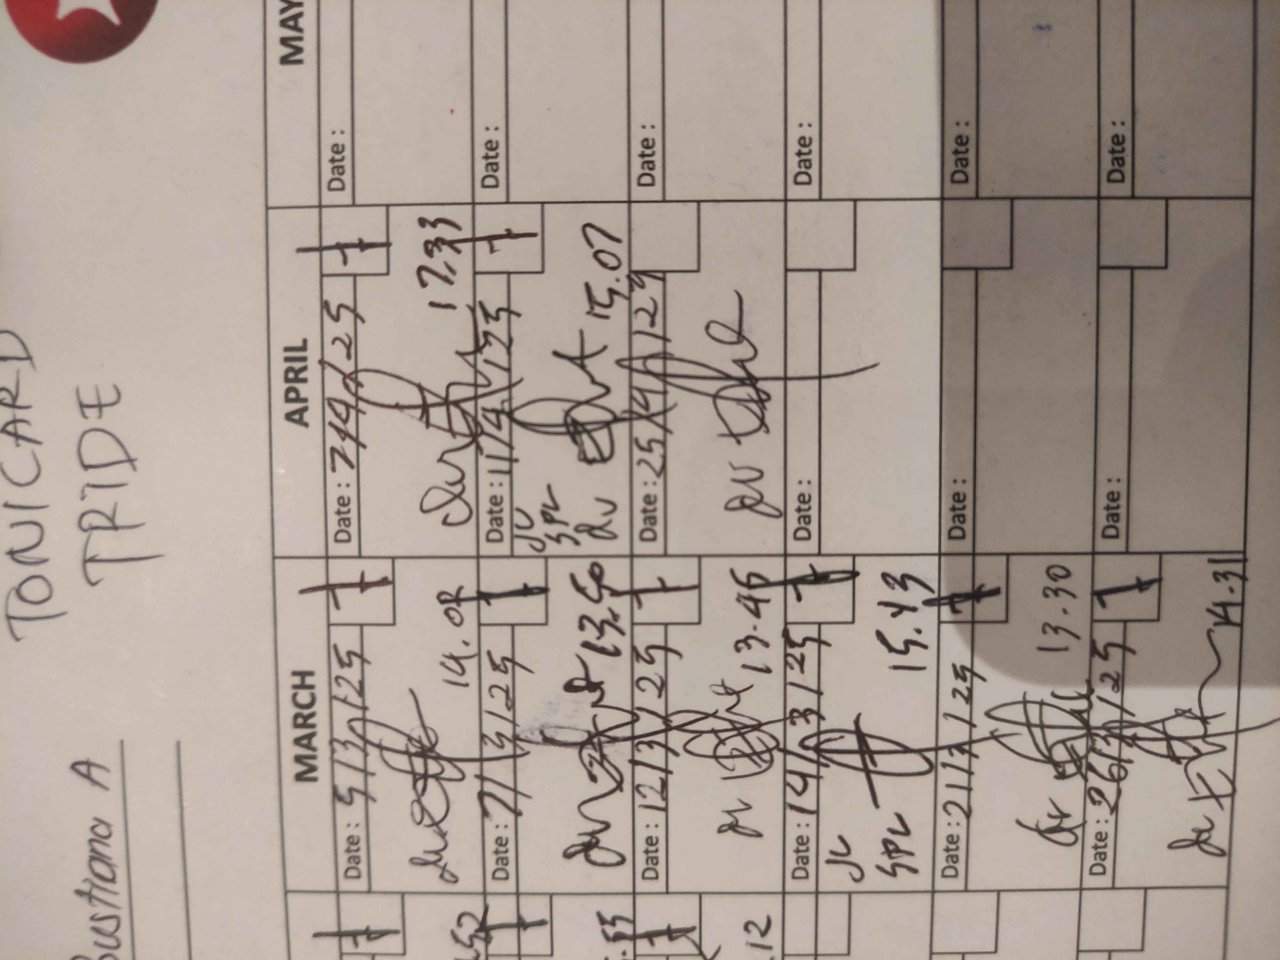 TONICARD
TRIDE
Bustiana A
MARCH
APRIL
MAY
Date : 5/3/25
14.02
Date : 7/4/25
17.33
Date :
Date : 7/3/25
13.50
Date : 11/4/25
JC
SPV
15.07
Date :
Date : 12/3/25
13.46
Date : 25/4/25
Date :
Date : 14/3/25
JC
SPV
15.43
Date :
Date :
Date : 21/3/25
13.30
Date :
Date :
Date : 26/3/25
14.31
Date :
Date :
.12